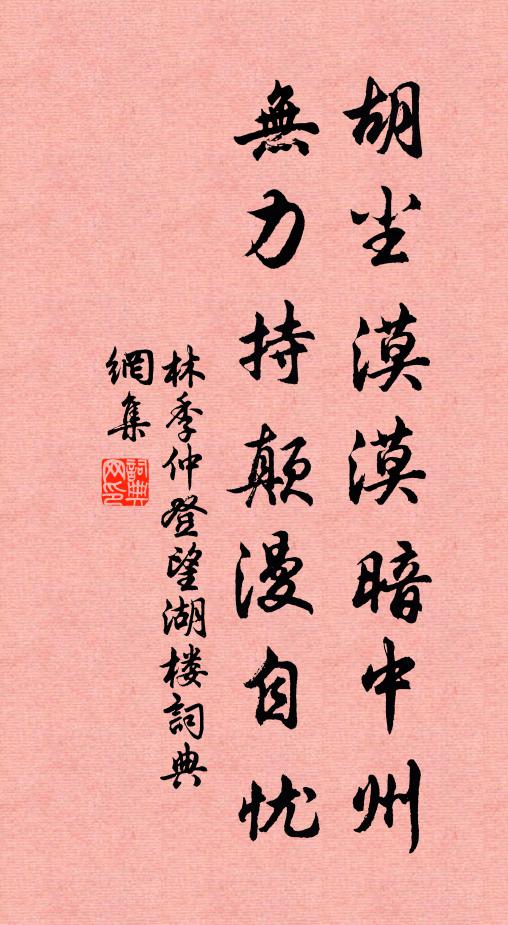 胡尘漠漠暗中州
無力持颠漫自忧
林季仲登望湖楼詞典
網集
詞典網印